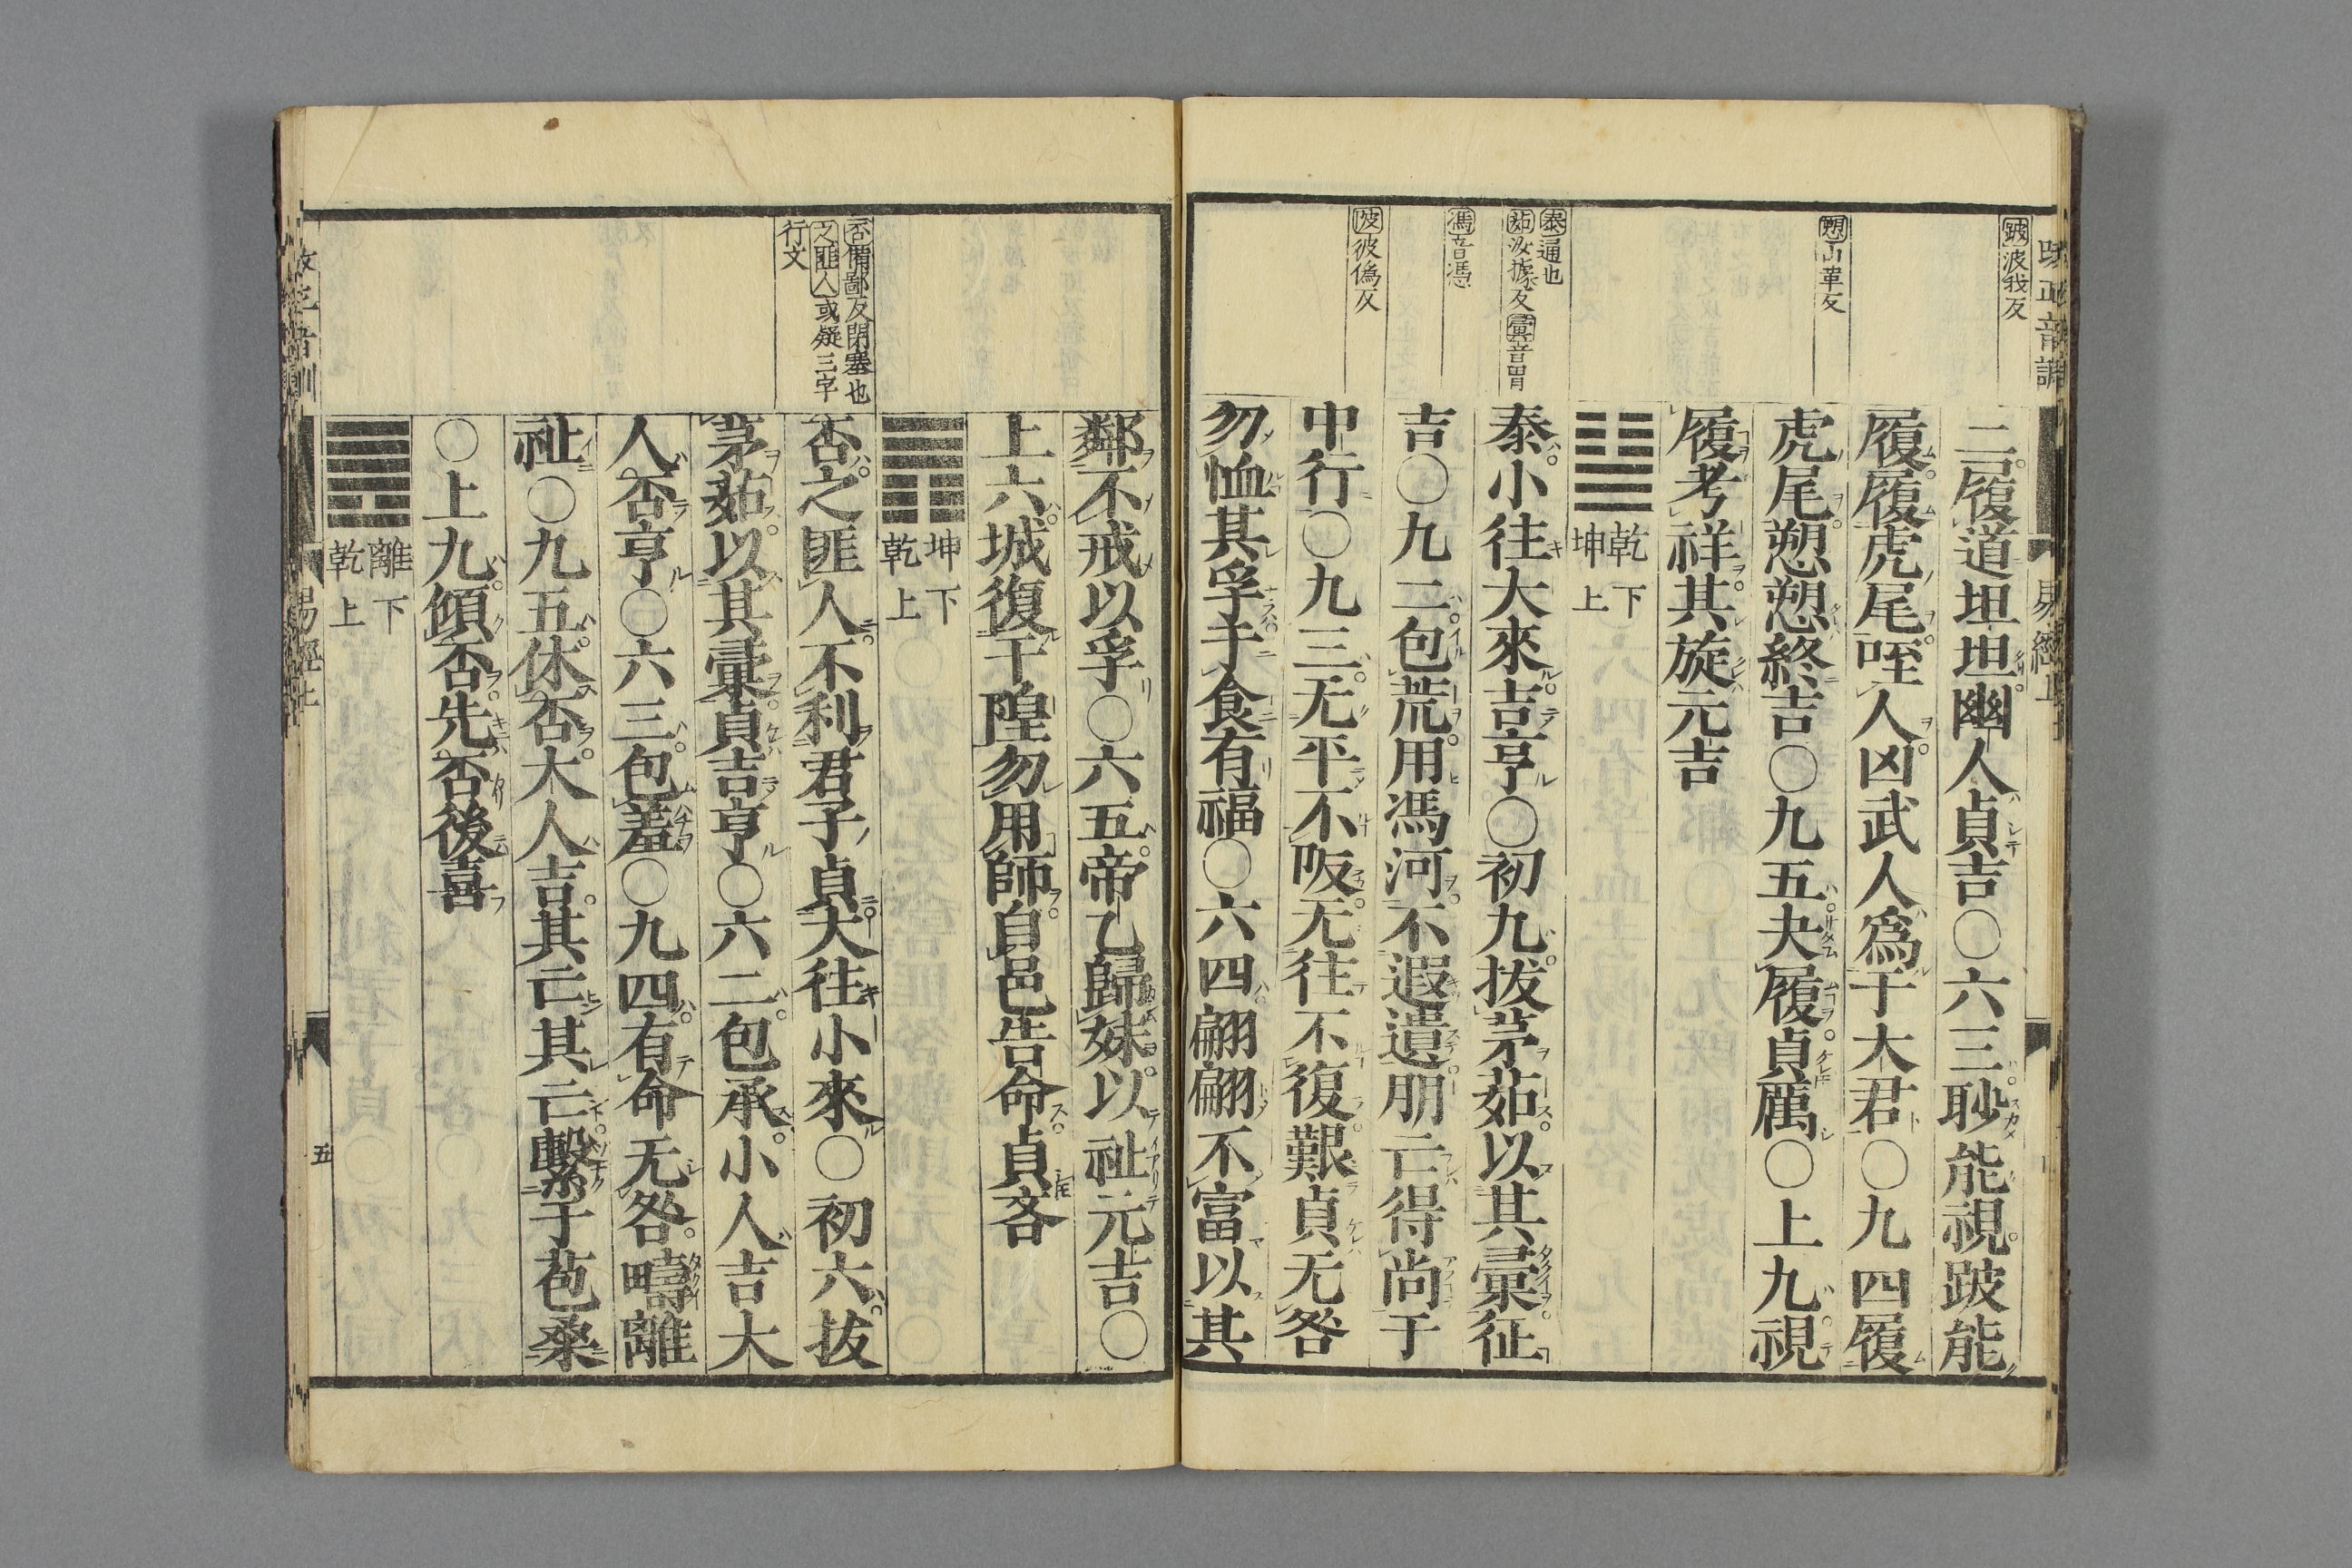 跛波我反
愬山革反
泰通也
茹汝據反彙音胃
馮音憑
陂彼僞反
易經上
二履道坦坦幽人貞吉〇六三眇能視跛能
履履虎尾咥人凶武人爲于大君〇九四履
虎尾愬愬終吉〇九五夬履貞厲〇上九視
履考祥其旋元吉
乾下
坤上
泰小往大來吉亨〇初九拔茅茹以其彙征
吉〇九二包荒用馮河不遐遺朋亡得尚于
中行〇九三无平不陂无往不復艱貞无咎
勿恤其孚于食有福〇六四翩翩不富以其
否備鄙反閉塞也
之匪人或疑三字
行文
鄰不戒以孚〇六五帝乙歸妹以祉元吉〇
上六城復于隍勿用師自邑告命貞吝
坤下
乾上
否之匪人不利君子貞大往小來〇初六拔
茅茹以其彙貞吉亨〇六二包承小人吉大
人否亨〇六三包羞〇九四有命无咎疇離
祉〇九五休否大人吉其亡其亡繫于苞桑
〇上九傾否先否後喜
離下
乾上
易經上
五